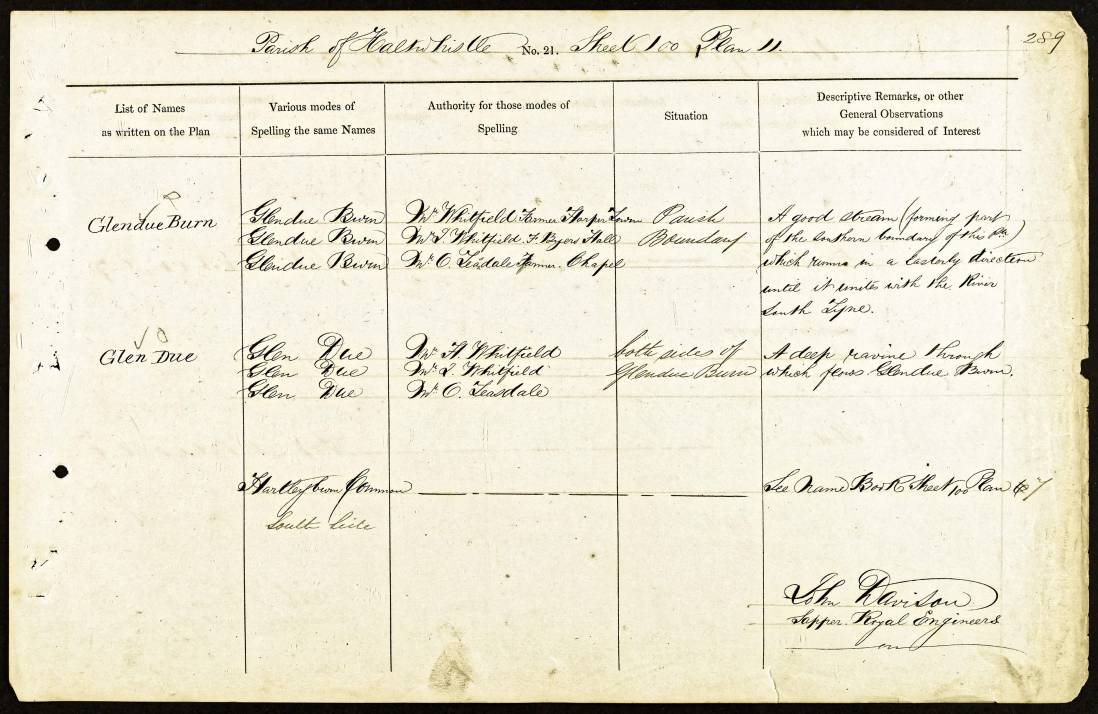 Parish of Haltwhistle No. 21. Sheet 100 Plan 11.
289
List of Names
as written on the Plan
Various modes of
Spelling the same Names
Authority for those modes of
Spelling
Situation
Descriptive Remarks, or other
General Observations
which may be considered of Interest
Glendue Burn
Glendue Burn
Glendue Burn
Glendue Burn
Mr Whitfield Farmer Harper Town
Mr J. Whitfield F. Byers Hall
Mr C. Teasdale Farmer. Chapel
Parish
Boundary
A good stream (forming part
of the Southern boundary of this Ph.)
which runns in a Easterly direction
until it unites with the River
South Tyne.
Glen Due
Glen Due
Glen Due
Glen Due
Mr H. Whitfield
Mr J. Whitfield
Mr C. Teasdale
both sides of
Glendue Burn
A deep ravine through
which flows Glendue Burn.
Hartleyburn Common
South Side
See Name Book Sheet 100 Plan 7
John Davison
Sapper Royal Engineers